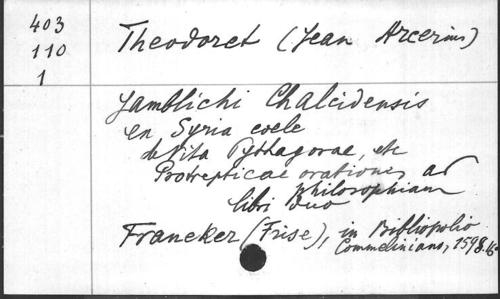 403
110
1
Theodoret (Jean Arcerius)
Jamblichi Chalcidensis
en Syria coele
de Vita Pythagorae, etc
Protrepticae orationes ad
Philosophiam
libri duo
Franeker (Frise), in Bibliopolio
Commeliniano, 1598.